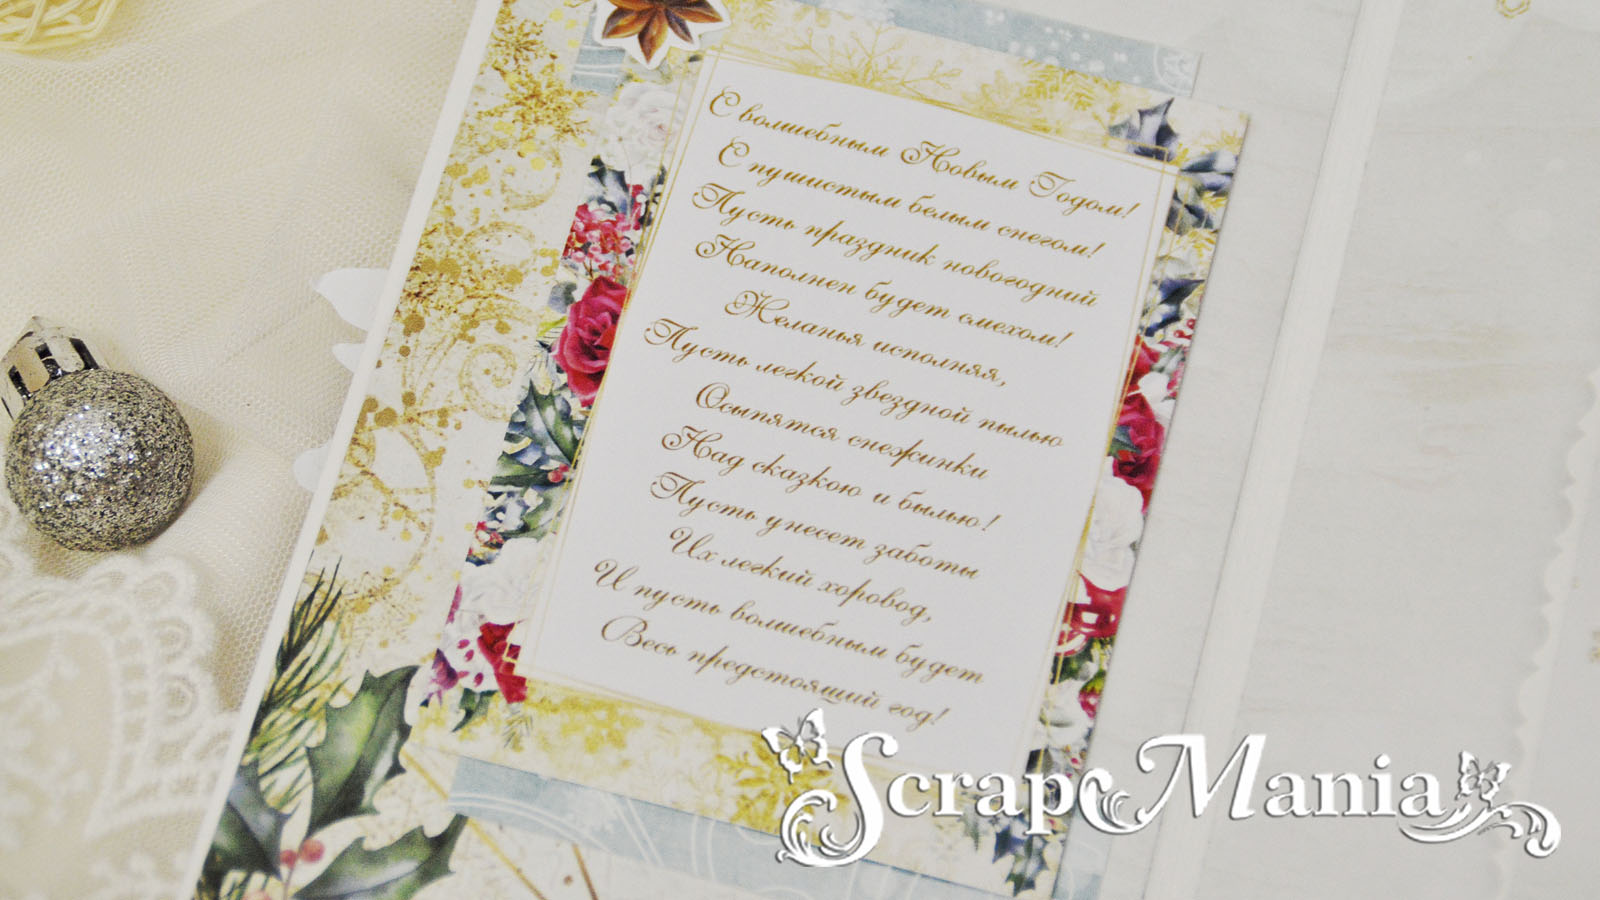 С волшебным Новым Годом!
С пушистым белым снегом!
Пусть праздник новогодний
Наполнен будет смехом!
Желанья исполняя,
Пусть легкой звездной пылью
Осыпятся снежинки
Над сказкою и былью!
Пусть унесет заботы
Их легкий хоровод,
И пусть волшебным будет
Весь предстоящий год!
Scrap Mania